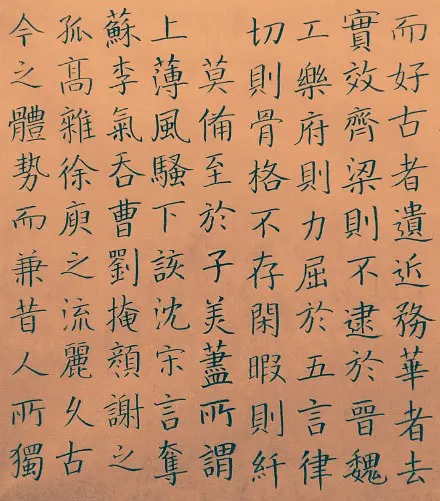 而好古者遺近務華者去
實效齊梁則不逮於晉魏
工樂府則力屈於五言律
切則骨格不存閑暇則纤
莫備至於子美蓋所謂
上薄風騷下該沈宋言奪
蘇李氣吞曹劉掩顏謝之
孤髙雜徐庾之流麗久古
今之體勢而兼昔人所獨